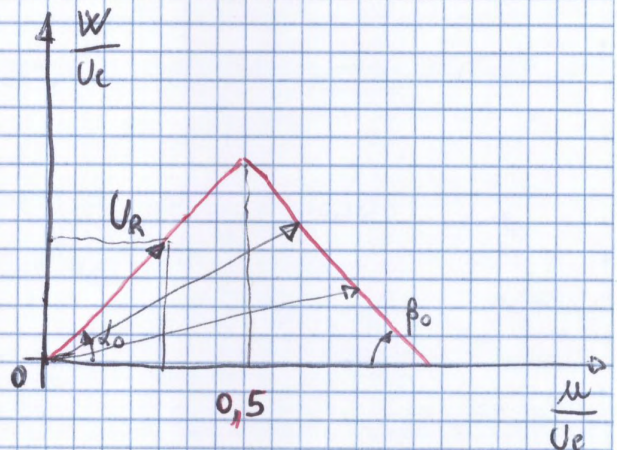 W
Ue
UR
α₀
β₀
0
0,5
u
Ue